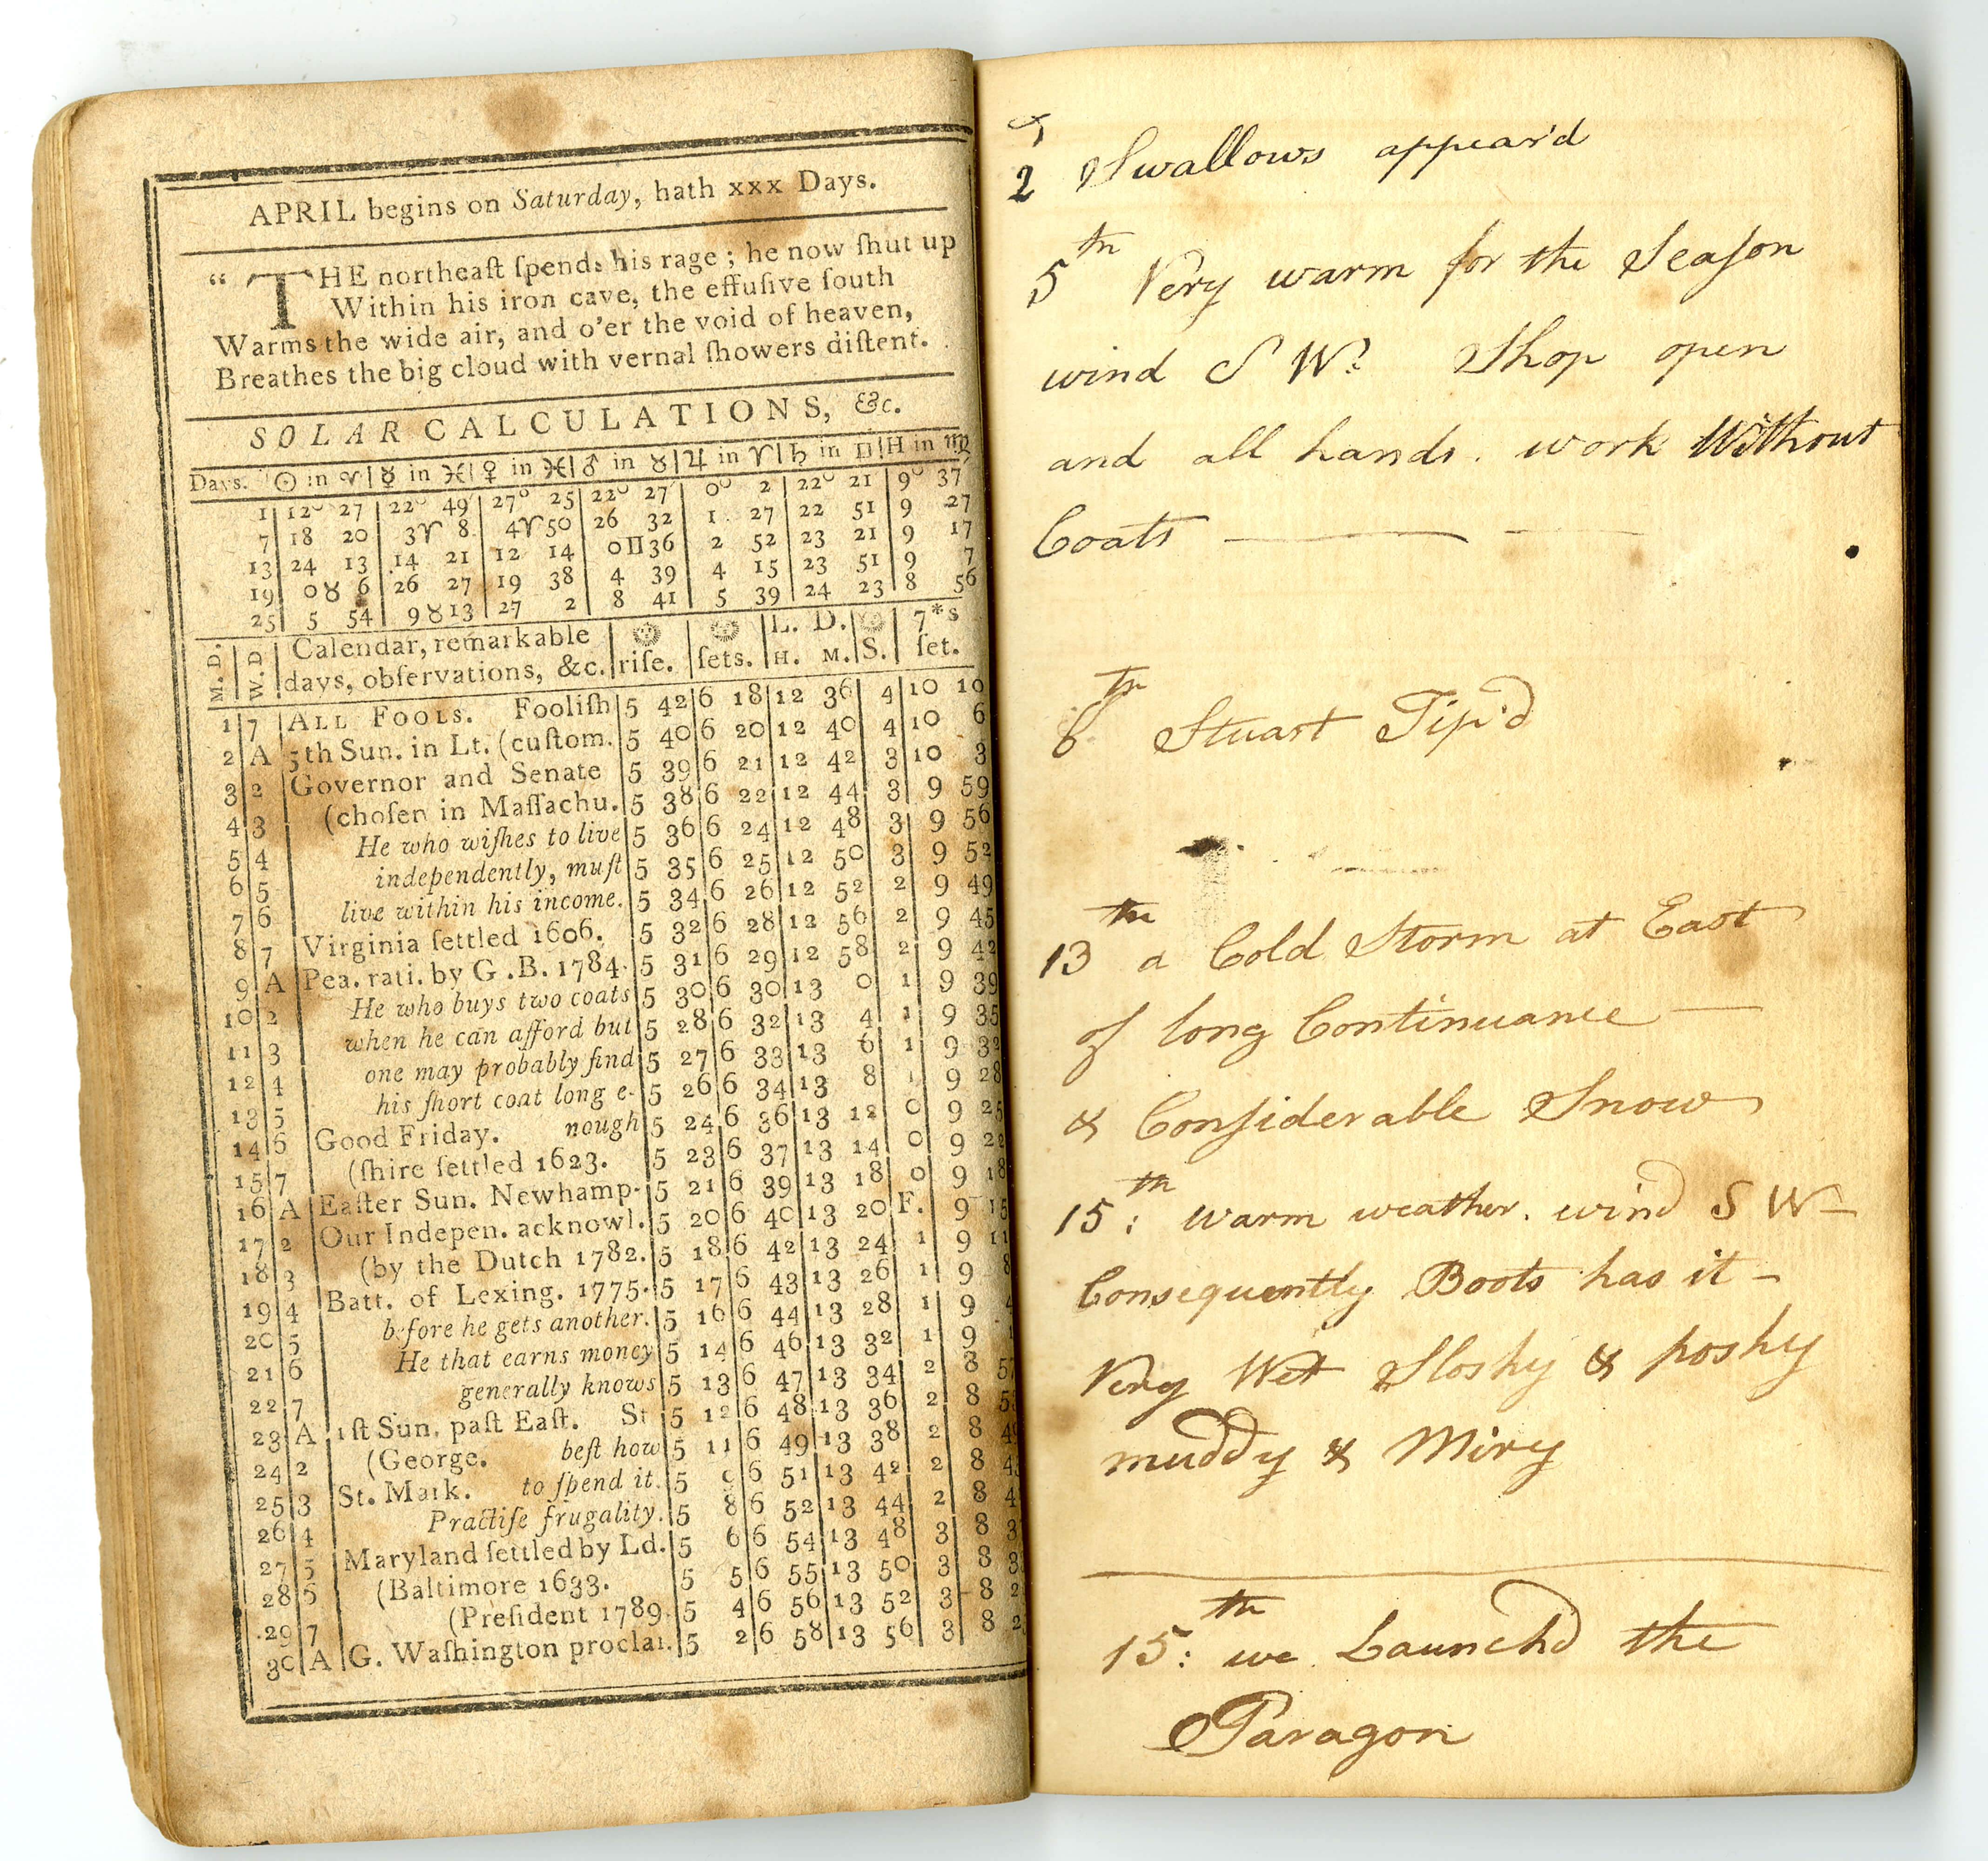 APRIL begins on Saturday, hath xxx Days.
“THE northeaſt ſpends his rage; he now ſhut up
Within his iron cave, the effuſive ſouth
Warms the wide air, and o'er the void of heaven,
Breathes the big cloud with vernal ſhowers diſtent.
SOLAR CALCULATIONS, &c.
Days. ☉ in ♈ ☿ in ♓ ♀ in ♓ ♂ in ♉ ♃ in ♈ ♄ in ♊ H in ♍
1 12° 27 22° 49 27° 25 22° 27 0° 2 22° 21 9° 37
7 18 20 3♈ 8 4♈50 26 32 1 27 22 51 9 27
13 24 13 14 21 12 14 0♊36 2 52 23 21 9 17
19 0♉ 6 26 27 19 38 4 39 4 15 23 51 9 7
25 5 54 9♉13 27 2 8 41 5 39 24 23 8 56
M. D. W. D Calendar, remarkable days, obſervations, &c. riſe. ſets. L. D. H. M. S. 7*s ſet.
1 7 ALL FOOLS. Fooliſh 5 42 6 18 12 36 4 10 10
2 A 5th Sun. in Lt. (cuſtom. 5 40 6 20 12 40 4 10 6
3 2 Governor and Senate 5 39 6 21 12 42 3 10 3
4 3 (choſen in Maſſachu. 5 38 6 22 12 44 3 9 59
5 4 He who wiſhes to live 5 36 6 24 12 48 3 9 56
6 5 independently, muſt 5 35 6 25 12 50 3 9 52
7 6 live within his income. 5 34 6 26 12 52 2 9 49
8 7 Virginia ſettled 1606. 5 32 6 28 12 56 2 9 45
9 A Pea. rati. by G. B. 1784. 5 31 6 29 12 58 2 9 42
10 2 He who buys two coats 5 30 6 30 13 0 1 9 39
11 3 when he can afford but 5 28 6 32 13 4 1 9 35
12 4 one may probably find 5 27 6 33 13 6 1 9 32
13 5 his ſhort coat long e- 5 26 6 34 13 8 1 9 28
14 6 Good Friday. nough 5 24 6 36 13 12 0 9 25
15 7 (ſhire ſettled 1623. 5 23 6 37 13 14 0 9 22
16 A Eaſter Sun. Newhamp- 5 21 6 39 13 18 0 9 18
17 2 Our Indepen. acknowl. 5 20 6 40 13 20 F. 9 15
18 3 (by the Dutch 1782. 5 18 6 42 13 24 1 9 11
19 4 Batt. of Lexing. 1775. 5 17 6 43 13 26 1 9 8
20 5 before he gets another. 5 16 6 44 13 28 1 9 4
21 6 He that earns money 5 14 6 46 13 32 1 9 1
22 7 generally knows 5 13 6 47 13 34 2 8 57
23 A 1ſt Sun. paſt Eaſt. St 5 12 6 48 13 36 2 8
24 2 (George. beſt how 5 11 6 49 13 38 2 8
25 3 St. Mark. to ſpend it. 5 9 6 51 13 42 2 8
26 4 Practiſe frugality. 5 8 6 52 13 44 2 8
27 5 Maryland ſettled by Ld. 5 6 6 54 13 48 3 8
28 6 (Baltimore 1633. 5 5 6 55 13 50 3 8
29 7 (Preſident 1789. 5 4 6 56 13 52 3 8
30 A G. Waſhington proclai. 5 2 6 58 13 56 3 8
2 Swallows appear'd
5th Very warm for the Seaſon
wind S W. Shop open
and all hands. work Without
Coats
6th Stuart Tip'd
13th a Cold Storm at East
of long Continuance
& Conſiderable Snow
15th: warm weather. wind S W—
Consequently Boots has it—
Very Wet Sloshy & poshy
muddy & Miry
15th: we Launchd the
Paragon